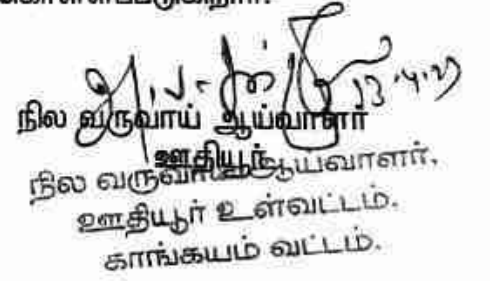 நில வருவாய் ஆய்வாளர்
ஊதியூர்
நில வருவாய் ஆய்வாளர்,
ஊதியூர் உள்வட்டம்.
காங்கயம் வட்டம்.